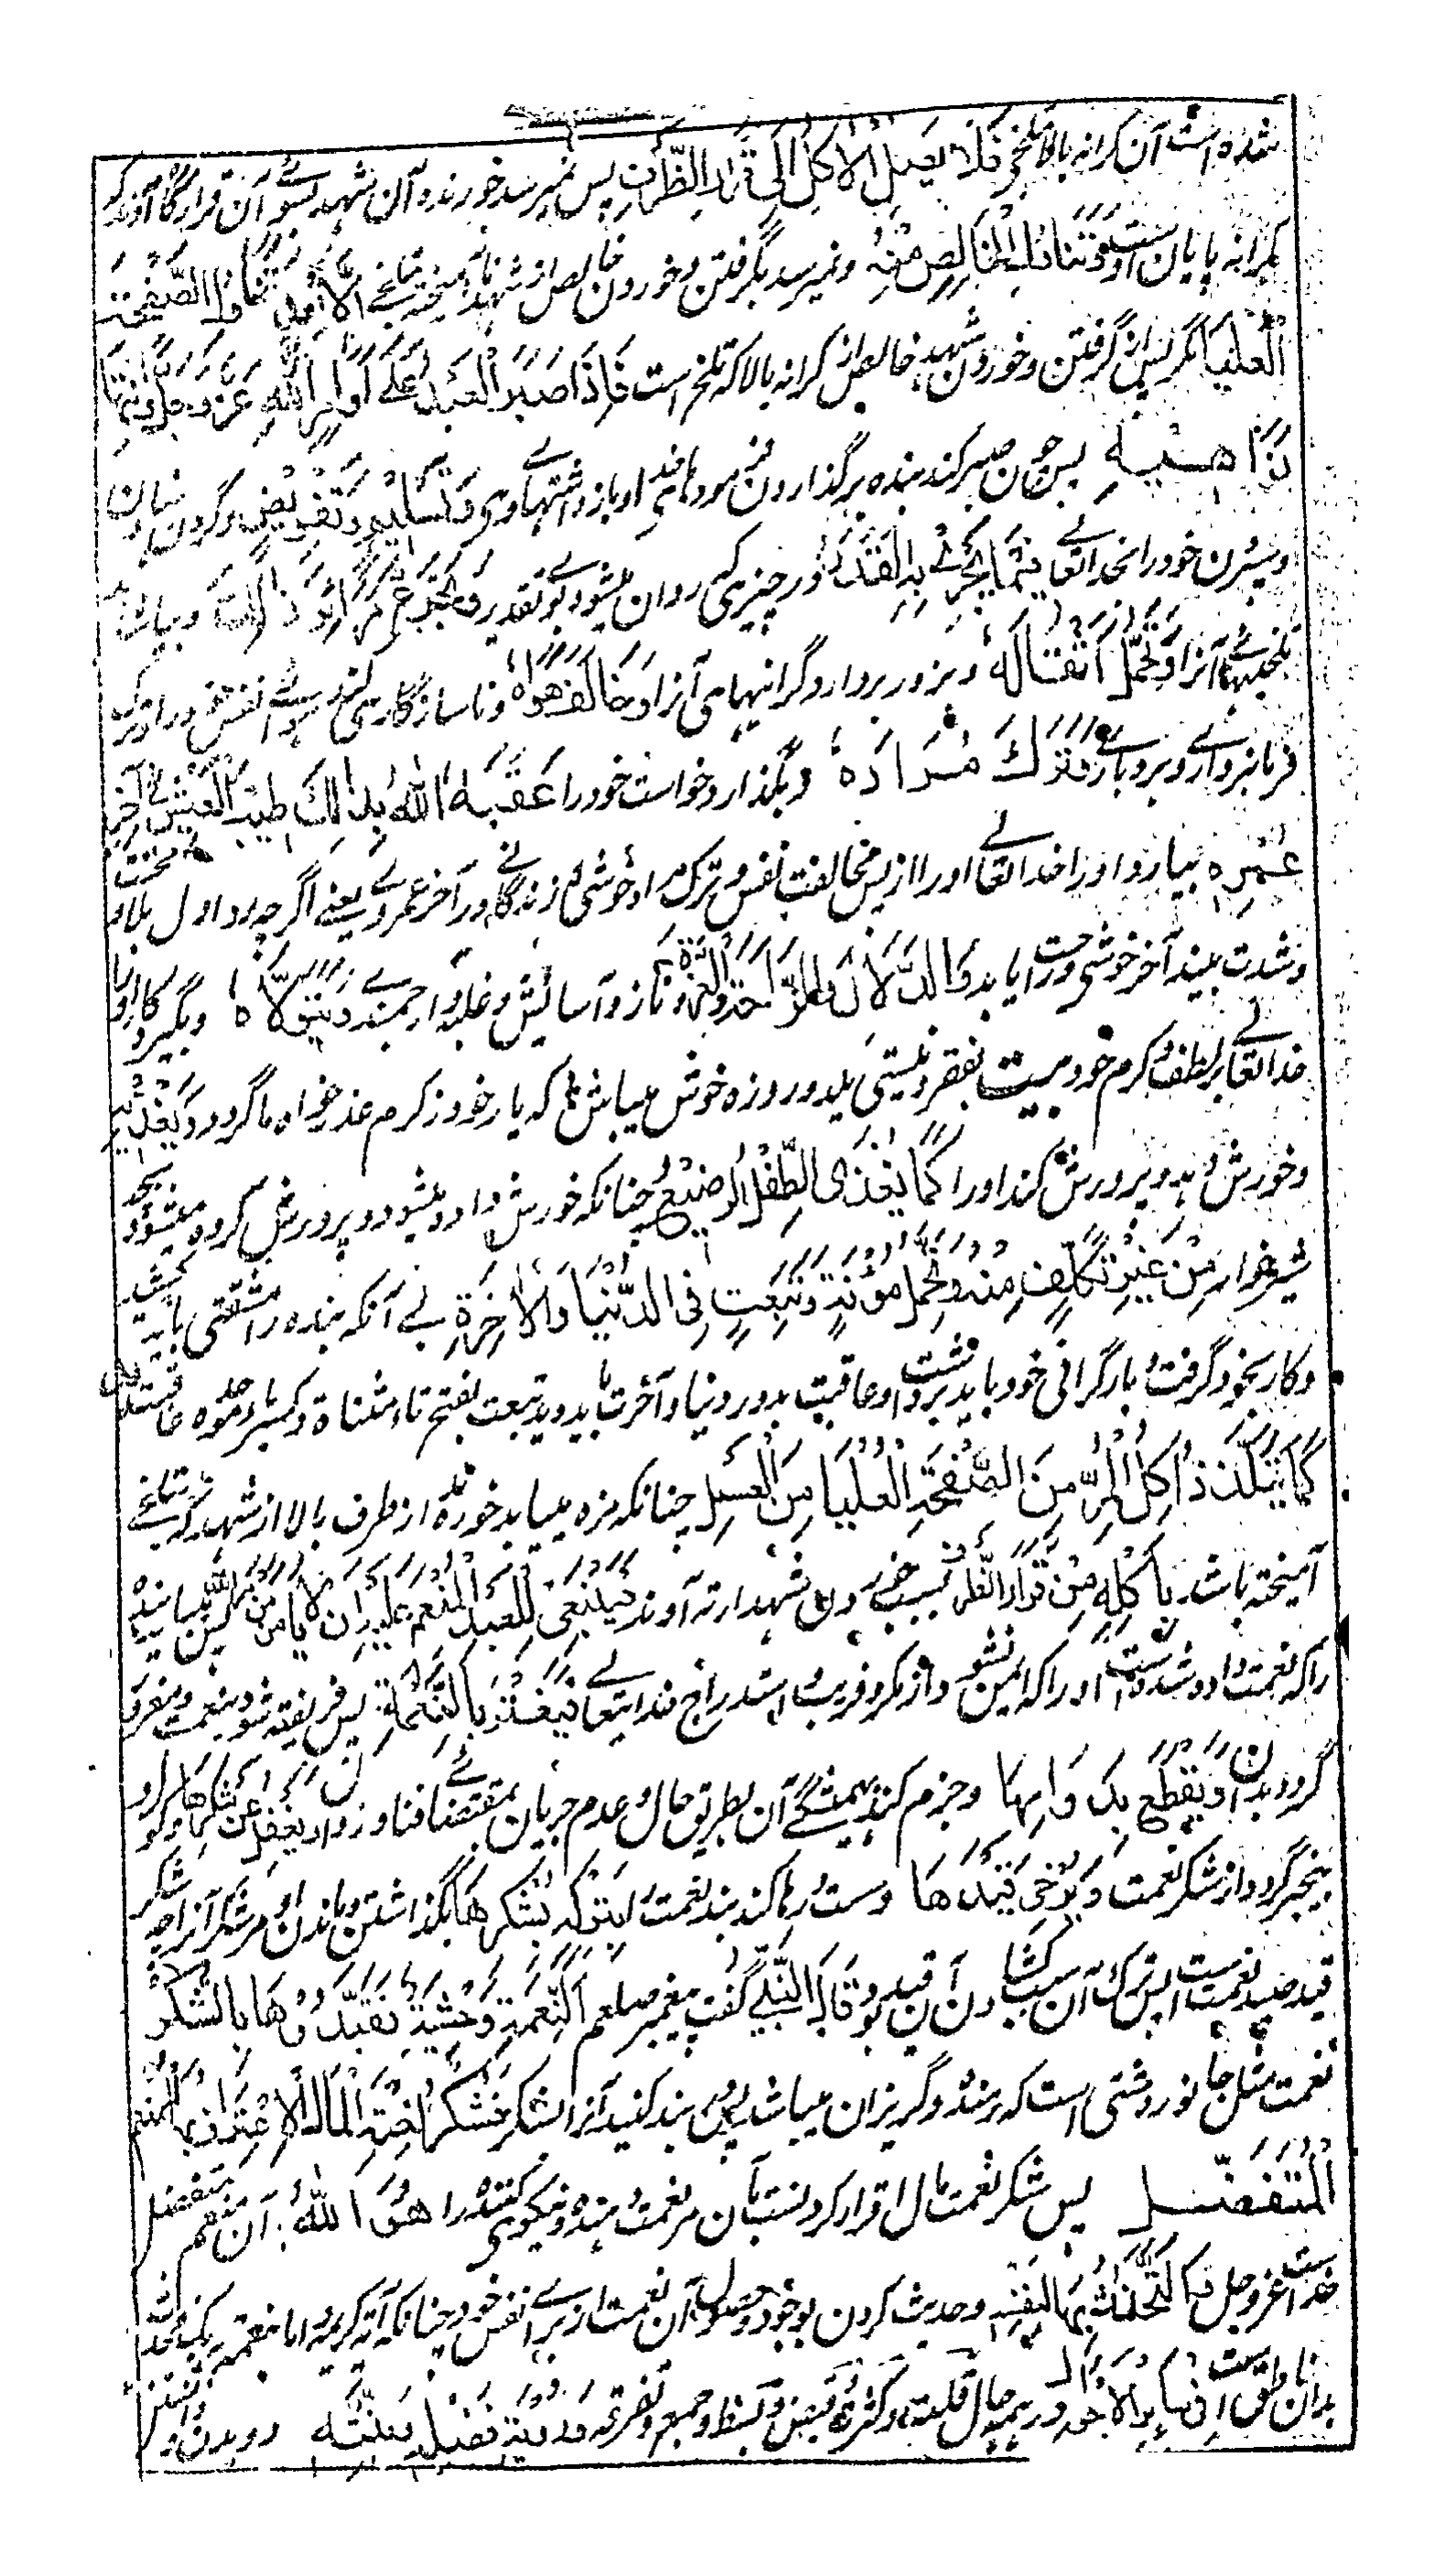 شده است آن کرانه بالا بتلخی فَلَا یَصِلُ الْاٰکِلُ اِلٰی قَرَارِ الظَّرْفِ پس نمیرسد خورنده آن شهد بسوے آن قرارگاه آوند که
کرانه پایان اوست وَتَنَاوُلِ الْخَالِصِ مِنْهُ ونمیرسد بگرفتن وخوردن خالص از شهد نا آمیخته بتلخے اِلَّا بَعْدَ تَنَاوُلِ الصَّفْحَةِ
الْعُلْیَا مگر پس از گرفتن وخوردن شهد خالص از کرانه بالا که تلخ است فَاِذَا صَبَرَ الْعَبْدُ عَلٰے اَوَامِرِ اللّٰهِ عَزَّ وَجَلَّ وَانْتِهَا
نَوَاهِیْهِ پس چون صبر کند بنده برگذاردن فرمودهاے خداے او بازداشتنهاے وی وَتَسْلِیْمٍ وَتَفْوِیْضٍ وگردن نهادن
وسپردن خود را بخدایتعالے فِیْمَا یَجْرِیْ بِهِ الْقَدَرُ در چیزیکه روان میشود بوے تقدیر وَتَجَرَّعَ مَرَائِرَ ذٰلِكَ وبیاشامد
تلخیهاے آنرا وَتَحَمَّلَ اَثْقَالَهٗ وبزور بردارد گرانیهاے آنرا وَخَالَفَ هَوَاهُ وناسازگاری کند هواے نفس خود را وترک
فرمانبردارے وبردبارے وَتَرَكَ مُرَادَهٗ وبگذارد خواست خود را عَقَّبَهُ اللّٰهُ بِذٰلِكَ طِیْبَ الْعَیْشِ فِیْ آخِرِ
عُمْرِهٖ بیارد او را خدایتعالے او را از پس مخالفت نفس وترک مراد خوشی زندگانے در آخر عمر وے یعنے اگرچه در اول بلا و محنت
وشدت بیند آخر خوشی وراحت یابد وَالدَّلَالَ وَالرَّاحَةَ وَالْعِزَّةَ وناز وآسایش وغلبه وارجمندے وَیَتَوَلَّاهُ وبگیرد کار او را
خدایتعالے بلطف وکرم خود بیت بفقر ونیستے یکدو روزه خوش میباش * که یار خود ز کرم عذر خواه ما گردد وَیُغَذِّیْهِ
وخورش دهد وپرورش کند او را کَمَا یُغَذَّی الطِّفْلُ الرَّضِیْعُ چنانکه خورش داده میشود وپرورش کرده میشود بچه
شیرخوار مِنْ غَیْرِ تَکَلُّفٍ مِنْهُ وَتَحَمُّلِ مُؤْنَةٍ وَتَبِعَةٍ فِی الدُّنْیَا وَالْاٰخِرَةِ بے آنکه بنده را مشقتی باید کشید
وکار بخود گرفت وبار گرانی خود باید برداشت وعاقبت بد در دنیا وآخرت باید دید تبعت بفتح تاء مثناة وکسر باء موحده عاقبت
کَمَا یَتَلَذَّذُ اٰکِلُ الْمُرِّ مِنَ الصَّفْحَةِ الْعُلْیَا مِنَ الْعَسَلِ چنانکه مزه مییابد خورنده از طرف بالا از شهد که بتلخے
آمیخته باشد بِاَکْلِهٖ مِنْ قَرَارِ الظَّرْفِ بسبب خوردن شهد از ته آوند فَیَنْبَغِیْ لِلْعَبْدِ الْمُنْعَمِ عَلَیْهِ اَنْ لَّا یَاْمَنَ مَکْرَ اللّٰهِ پس میباید بنده
را که نعمت داده شده است او را که ایمن نشود از مکر وفریب واستدراج خدایتعالے فَیَغْتَرَّ بِالنِّعْمَةِ پس فریفته شود بنعمت ومغرور
گردد بدان وَیَقْطَعَ بِدَوَامِهَا وجزم کند بهمیشگے آن بطریق حال وعدم جریان بمقتضاے فنا وزوال وَیَغْفُلَ عَنْ شُکْرِهَا
بیخبر گردد از شکر نعمت وَیُرْخِیَ قَیْدَهَا وسست ورها کند بند نعمت را بِتَرْکِهٖ لِشُکْرِهَا بگذاشتن وماندن او مر شکر آنرا چه شکر
قید صید نعمت است پس ترک آن سبب کشادن آن قید بود قَالَ النَّبِیُّ گفت پیغمبر صلعم اَلنِّعْمَةُ وَحْشِیَّةٌ فَقَیِّدُوْهَا بِالشُّکْرِ
نعمت مثل جانور وحشی است که رمنده وگریزان میباشد پس بند کنید آنرا بشکر فَشُکْرُ نِعْمَةِ الْمَالِ الْاِعْتِرَافُ بِهَا لِلْمُنْعِمِ
الْمُتَفَضِّلِ پس شکر نعمت مال اقرار کردنست بآن مر نعمت دهنده ونیکوی کننده را هُوَ اللّٰهُ آن منعم متفضل
خداست عز وجل وَالتَّحَدُّثُ بِهَا لِنَفْسِهٖ وحدیث کردن بوجود وحصول آن نعمت از براے نفس خود چنانکه آیه کریمه اما بنعمة ربک فحدث
بدان ناطق است فِیْ سَائِرِ الْاَحْوَالِ در همه حال قلت وکثرت وقبض وبسط وجمع وتفرقه وَرُؤْیَةُ فَضْلِهٖ وَمِنَّتِهٖ ودیدن ودانستن